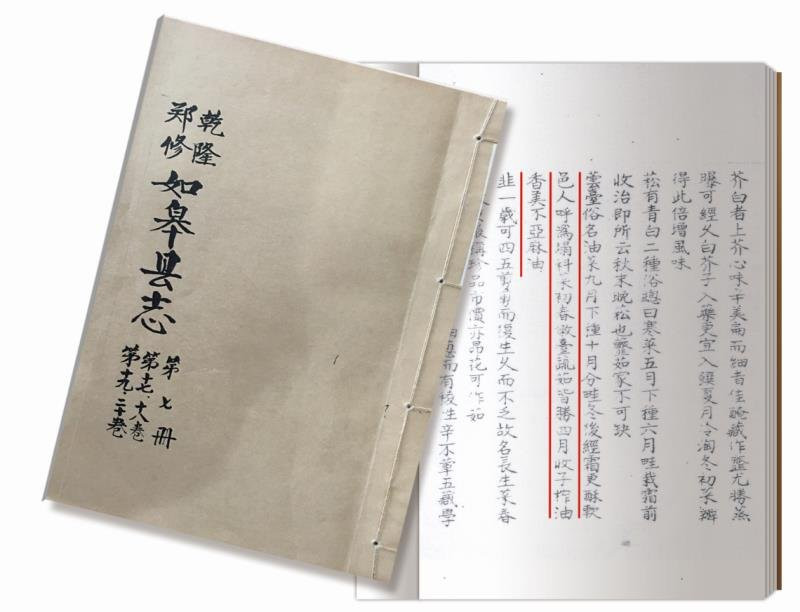 乾隆
郑修
如皋县志
第七册
第十七、十八卷
第十九、二十卷
芥白者上芥心味辛美扁而細者佳醃藏作虀尤勝蒸
曝可經久白芥子入藥更宜入饌夏月冷淘冬初菜辦
得此倍增風味
菘有青白二種俗總曰寒菜五月下種六月畦栽霜前
收治即所云秋末晚菘也虀茹家不可缺
蕓薹俗名油菜九月下種十月分畦冬後經霜更酥軟
邑人呼為塌科菜初春放薹蔬茹皆勝四月收子榨油
香美不亞麻油
韭一歲可四五剪剪而復生久而不乏故名長生菜春
珍品市價亦昂花可作茹
而有棱生辛不葷五臟學